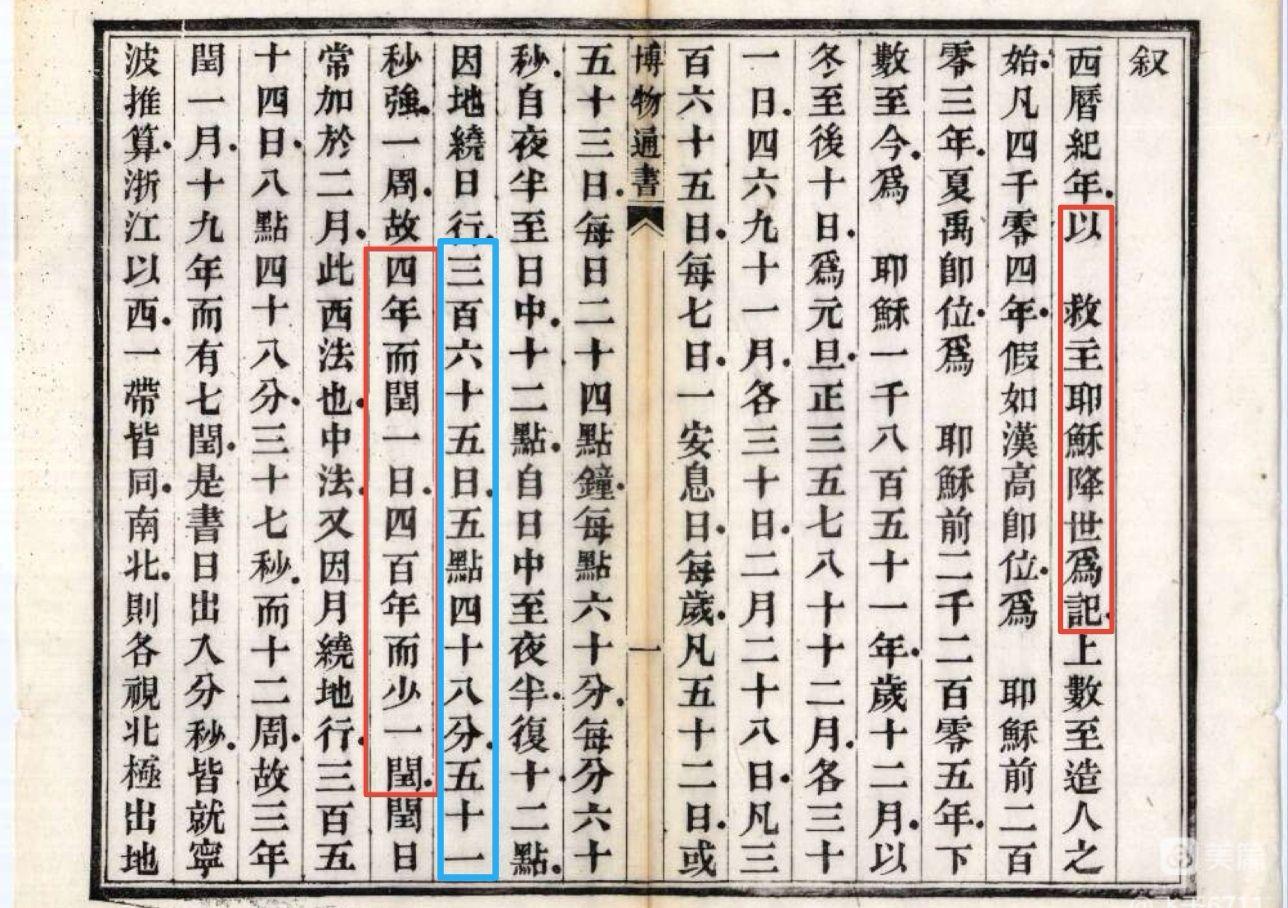 叙
西曆紀年.以　救主耶穌降世爲記.上數至造人之
始.凡四千零四年.假如漢高卽位.爲　耶穌前二百
零三年.夏禹卽位.爲　耶穌前二千二百零五年.下
數至今.爲　耶穌一千八百五十一年.歲十二月.以
冬至後十日.爲元旦.正三五七八十十二月.各三十
一日.四六九十一月.各三十日.二月二十八日.凡三
百六十五日.每七日.一安息日.每歲.凡五十二日.或
博物通書　一
五十三日.每日二十四點鐘.每點六十分.每分六十
秒.自夜半至日中.十二點.自日中至夜半.復十二點.
因地繞日行.三百六十五日.五點四十八分.五十一
秒強.一周.故四年而閏一日.四百年而少一閏.閏日
常加於二月.此西法也.中法.又因月繞地行.三百五
十四日.八點四十八分.三十七秒.而十二周.故三年
閏一月.十九年而有七閏.是書日出入分秒.皆就寧
波推算.浙江以西.一帶皆同.南北.則各視北極出地
美篇